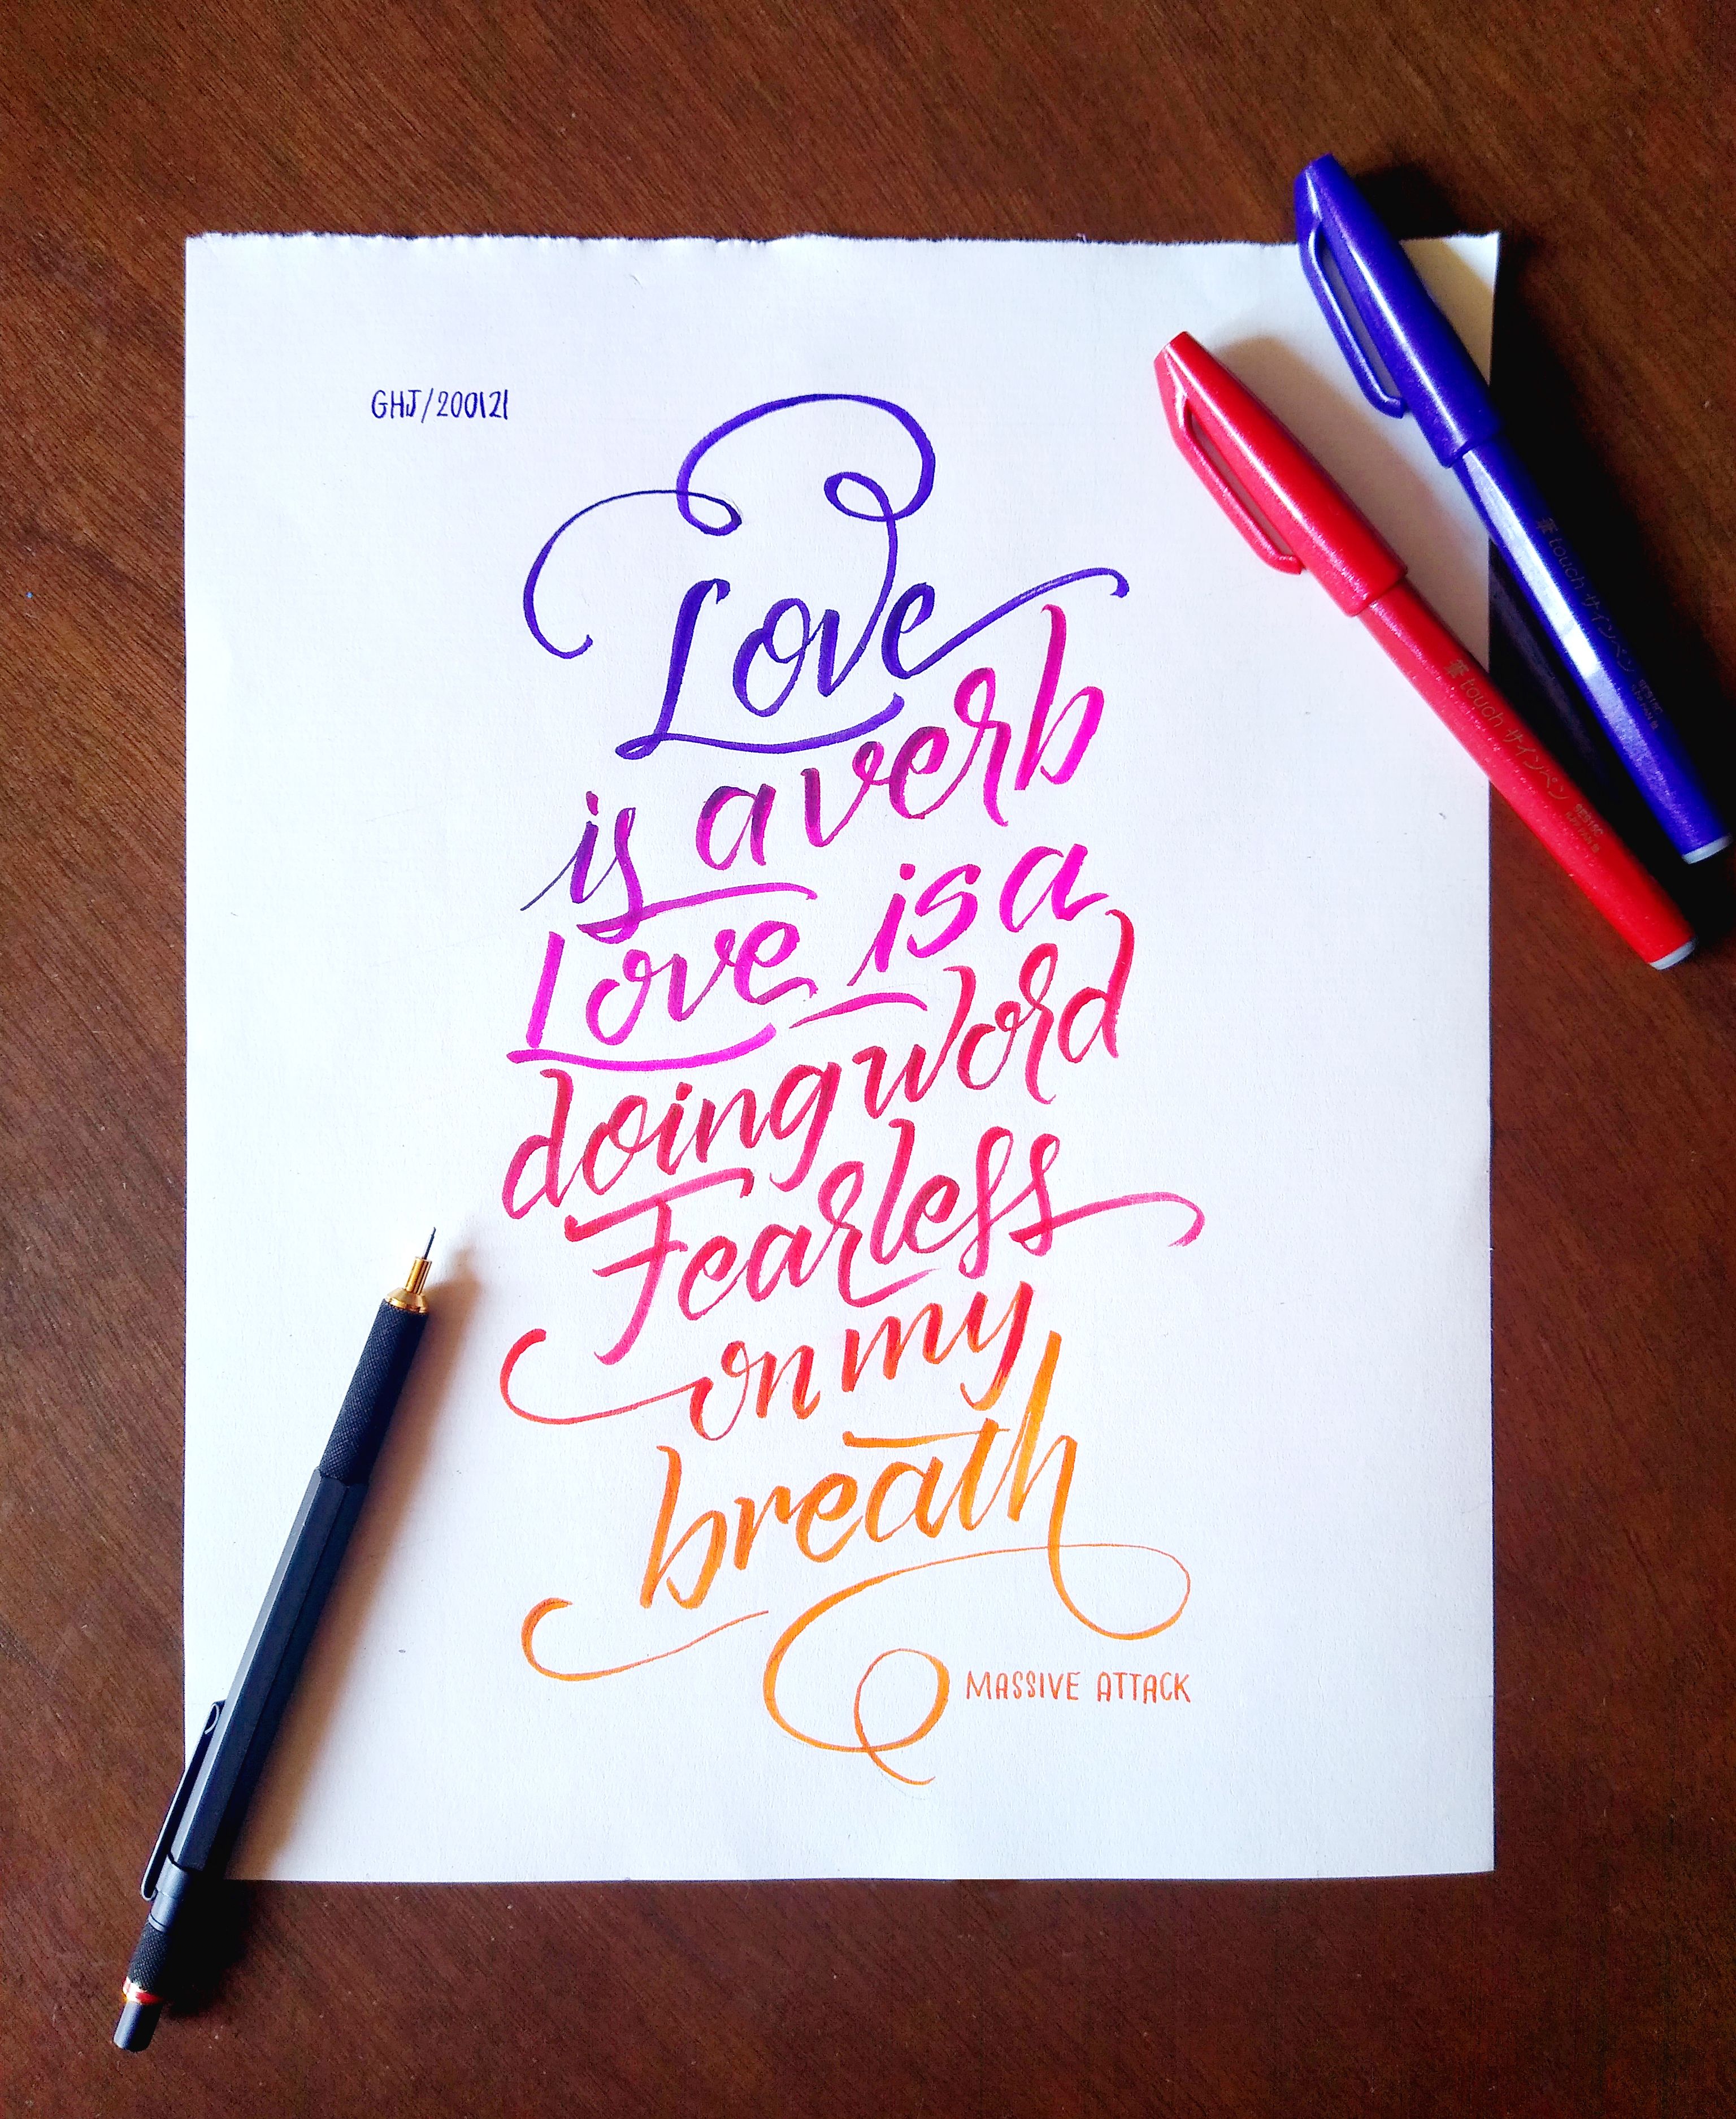 GHJ/200121
Love
is a verb
Love is a
doing word
Fearless
on my
breath
MASSIVE ATTACK
touch サインペン
touch サインペン